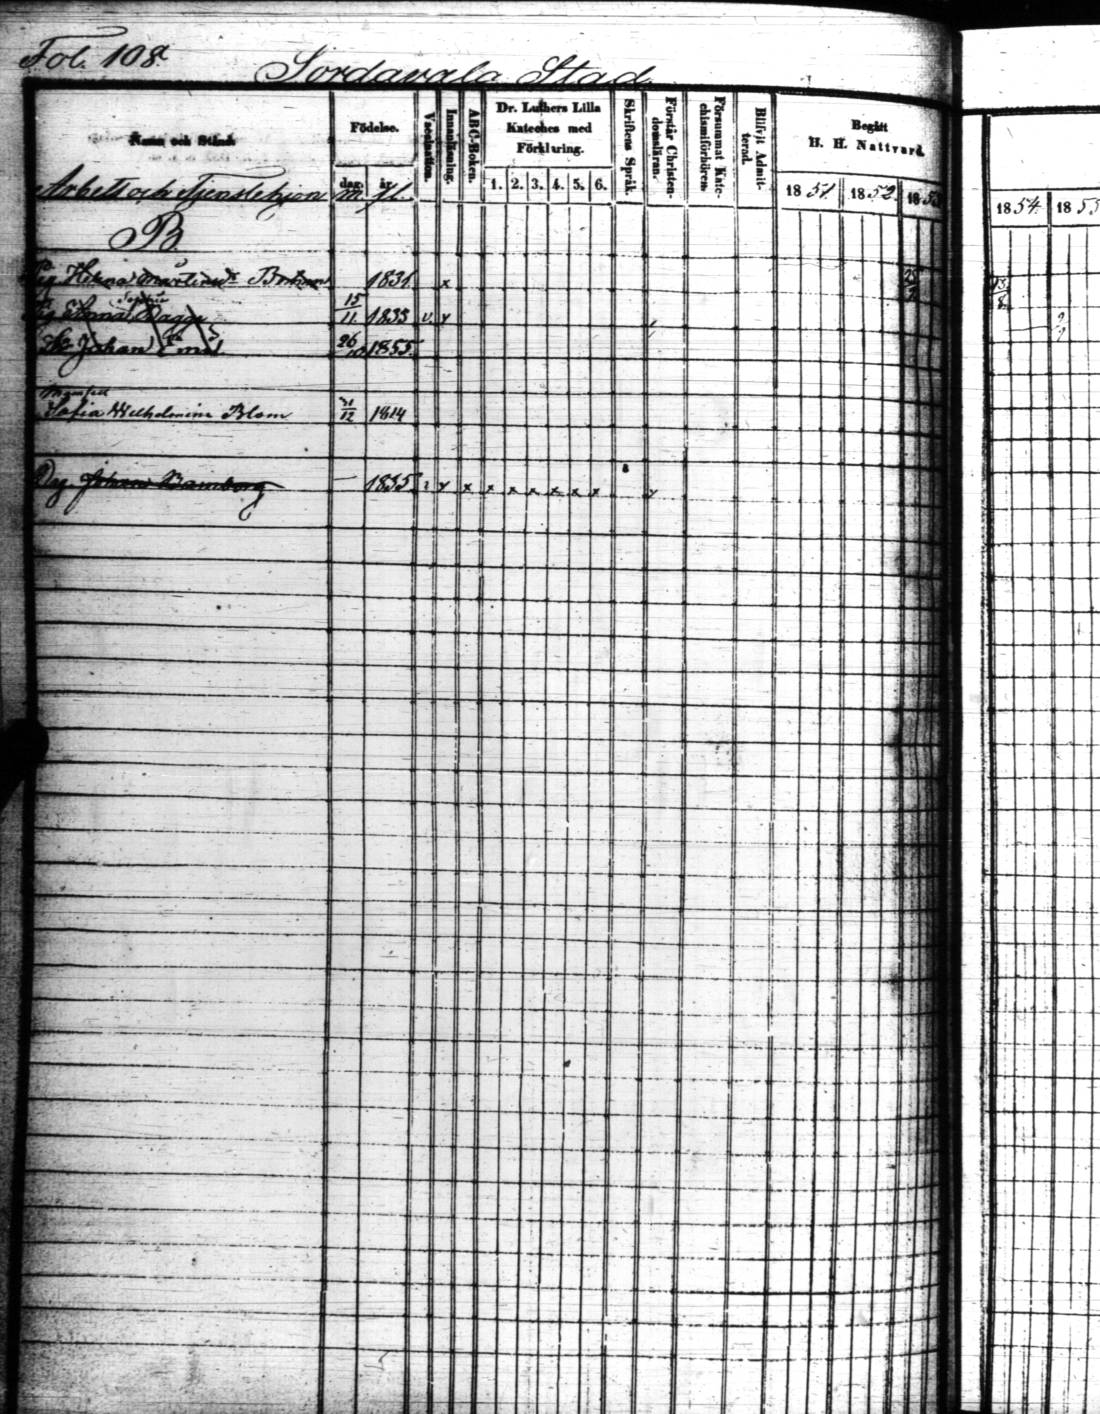 Fol. 108
Sordavala Stad
Namn och Stånd.
Födelse.
dag. år.
Vaccination.
Innanläsning.
ABC-Boken.
Dr. Luthers Lilla
Kateches med
Förklaring.
1. 2. 3. 4. 5. 6.
Skriftens Språk.
Förstår Christen-
domsläran.
Försummat Kate-
chismiförhören.
Blifvit Admit-
terad.
Begått
H. H. Nattvard.
1851. 1852. 1853
1854. 1855
Arbets och Tjenstehjon m. fl.
B
Helena 1831. x
Sophia
Anna Bagge 15/11 1833 v. x
Johan Emil 26/10 1855.
Sofia Wilhelmina Blom 31/12 1814
Johan Bamberg 1835. x x x x x x x